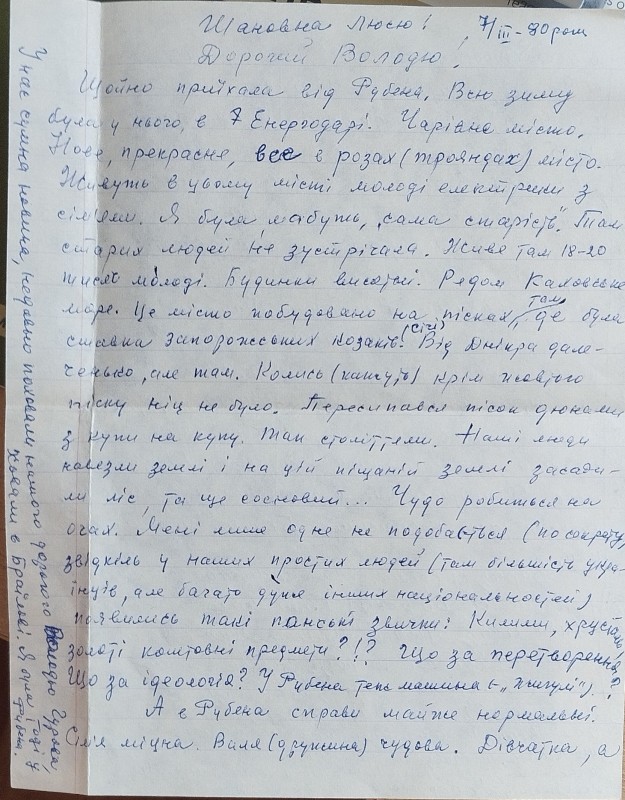 Шановна Люсю! 7/III-80 ром
Дорогий Володю!
Щойно приїхала від Рубена. Всю зиму
була у нього, в Енергодарі. Чарівне місто.
Нове, прекрасне, все в розах (трояндах) місто.
Живуть в цьому місті молоді електрики з
сім'ями. Я була, мабуть, "сама старість". Там
старих людей не зустрічала. Живе там 18-20
тисяч молоді. Будинки висотні. Рядом Каховське
море. Це місто побудовано на пісках, там де була
ставка запорожських козаків (Січі). Від Дніпра дале-
ченько, але там. Колись (кажуть) крім жовтого
піску ніц не було. Пересипався пісок дюнами
з купи на купу. Так століттями. Наші люди
навезли землі і на цій піщаній землі засади-
ли ліс, та ще сосновий... Чудо робиться на
очах. Мені лише одне не подобається (по секрету)
звідкіль у наших простих людей (там більшість укра-
їнців, але багато дуже інших національностей)
появились такі панські звички: Килими, хрусталь,
золоті коштовні предмети?!? Що за перетворення?
Що за ідеологія? У Рубена теж машина ("Жигулі").
А в Рубена справи майже нормальні.
Сім'я міцна. Валя (дружина) чудова. Дівчатка, а
У нас сумна новина, недавно поховали нашого дорогого Володю Гудзька,
ховали в Браїлові. Я була тоді у
Рубена.